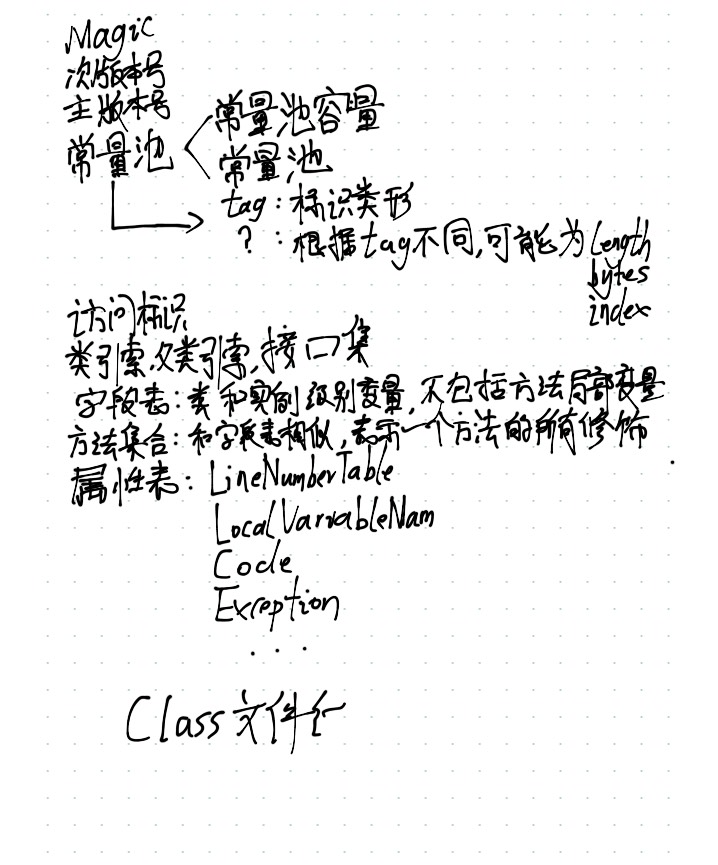 Magic
次版本号
主版本号
常量池
常量池容量
常量池
tag：标识类形
？：根据tag不同,可能为length
bytes
index
访问标识
类引索,父类引索,接口集
字段表：类和实例级别变量,不包括方法局部变量
方法集合：和字段表相似,表示一个方法的所有修饰
属性表：LineNumberTable
LocalVarvableNam
Code
Exception
...
Class文件